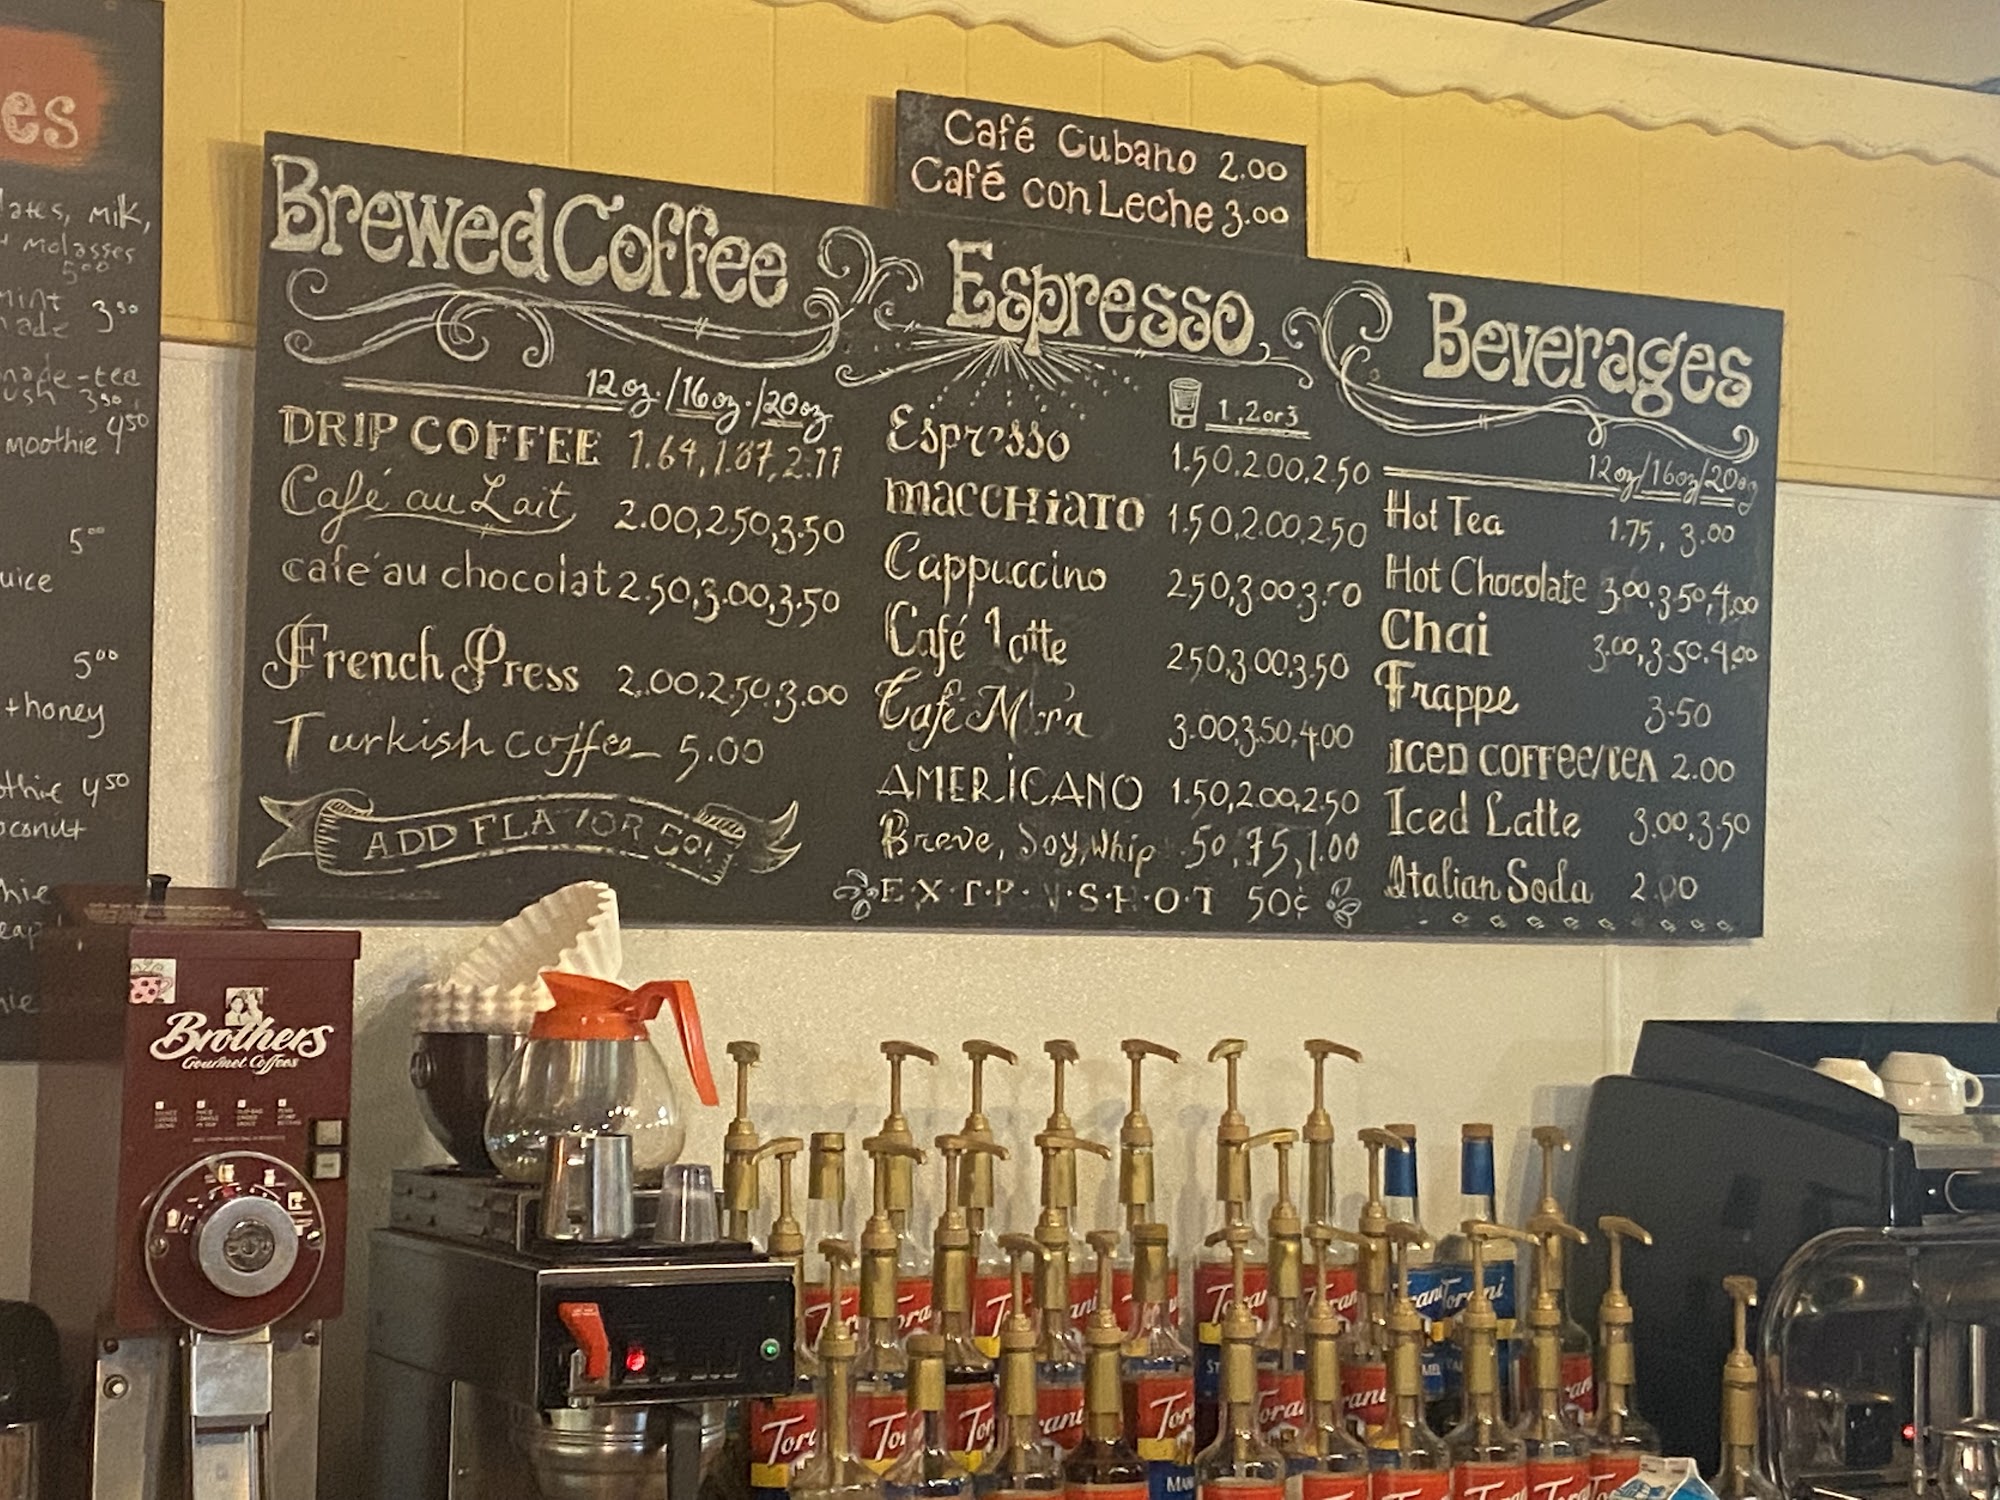 es
milk,
molasses
5.00
mint 3.50
ade
ade-tea
ush 3.50
moothie 4.50
5.00
uice
5.00
+ honey
othie 4.50
oconut
hie
Café Cubano 2.00
Café con Leche 3.00
Brewed Coffee
12oz./16oz./20oz
DRIP COFFEE 1.64, 1.87, 2.11
Café au Lait 2.00, 2.50, 3.50
café au chocolat 2.50, 3.00, 3.50
French Press 2.00, 2.50, 3.00
Turkish coffee 5.00
ADD FLAVOR 50¢
Espresso
1, 2 or 3
Espresso 1.50, 2.00, 2.50
macchiato 1.50, 2.00, 2.50
Cappuccino 2.50, 3.00, 3.50
Café Latte 2.50, 3.00, 3.50
Café Mocha 3.00, 3.50, 4.00
AMERICANO 1.50, 2.00, 2.50
Breve, Soy, Whip .50, .75, 1.00
E·X·T·R·A·S·H·O·T 50¢
Beverages
12oz/16oz/20oz
Hot Tea 1.75, 3.00
Hot Chocolate 3.00, 3.50, 4.00
Chai 3.00, 3.50, 4.00
Frappe 3.50
ICED COFFEE/TEA 2.00
Iced Latte 3.00, 3.50
Italian Soda 2.00
Brothers
Gourmet Coffees
Torani
Torani